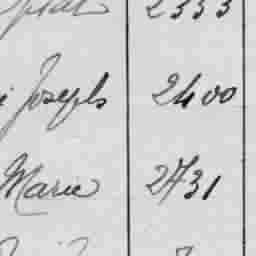 2333
Joseph 2400
Marie 2731